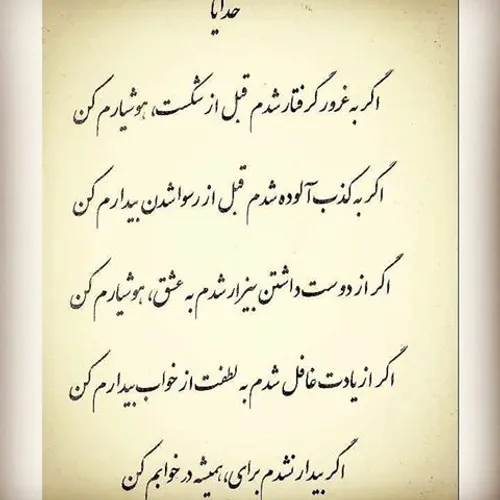 خدایا
اگر به غرور گرفتار شدم قبل از شکست، هوشیارم کن
اگر به کذب آلوده شدم قبل از رسوا شدن بیدارم کن
اگر از دوست داشتن بیزار شدم به عشق، هوشیارم کن
اگر از یادت غافل شدم به لطفت از خواب بیدارم کن
اگر بیدار نشدم برای، همیشه در خوابم کن